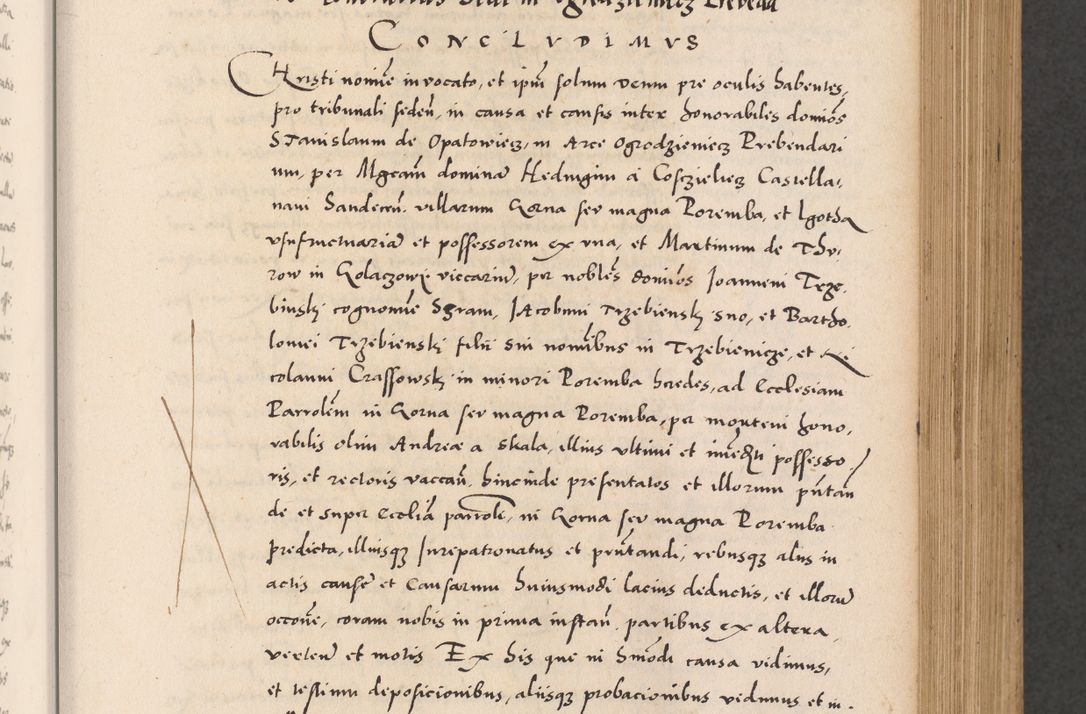 CONCLVDIMVS
Christi nomine invocato, et ipm solum Deum pre oculis habentes,
pro tribunali seden, in causa et causis inter honorabiles dominos
Stanislaum de Opatowiecz, in Arce Ogrodzieniecz Prebendari
um, per Mgcam dominam Hedwigim a Cosczieliecz Castella,
nani Sandecen. villarum Gorna seu magna Poremba, et Lgotha
vsufructuariam et possessorem ex vna, et Martinum de Thu,
row in Golaczowi viccarium, per nobles dominos Joannem Trze,
binski cognomine Sgram, Jacobum Trzebienski sno, et Bartho,
lomei Trzebienski filii sui nominibus in Trzebienicze, et Ni
colaum Crassowski in minori Poremba heredes, ad Ecclesiam
Parrolem in Gorna seu magna Poremba, per mortem hono,
rabilis olim Andreæ a Skala, illius vltimi et possesso
ris, et rectoris vaccan, hincinde presentatos et illorum pntan
de et super Ecclia parrole, in Gorna seu magna Poremba
predicta, illiusqz Jurepatronatus et pntandi, rebusqz aliis in
actis cause et Causarum huiusmodi lacius deductis, et illorum
occone, coram nobis in prima instan, partibus ex altera,
verten et motis Ex his que in hmodi causa vidimus,
et testium deposicionibus, aliisqz probacionibus vedimus et in,